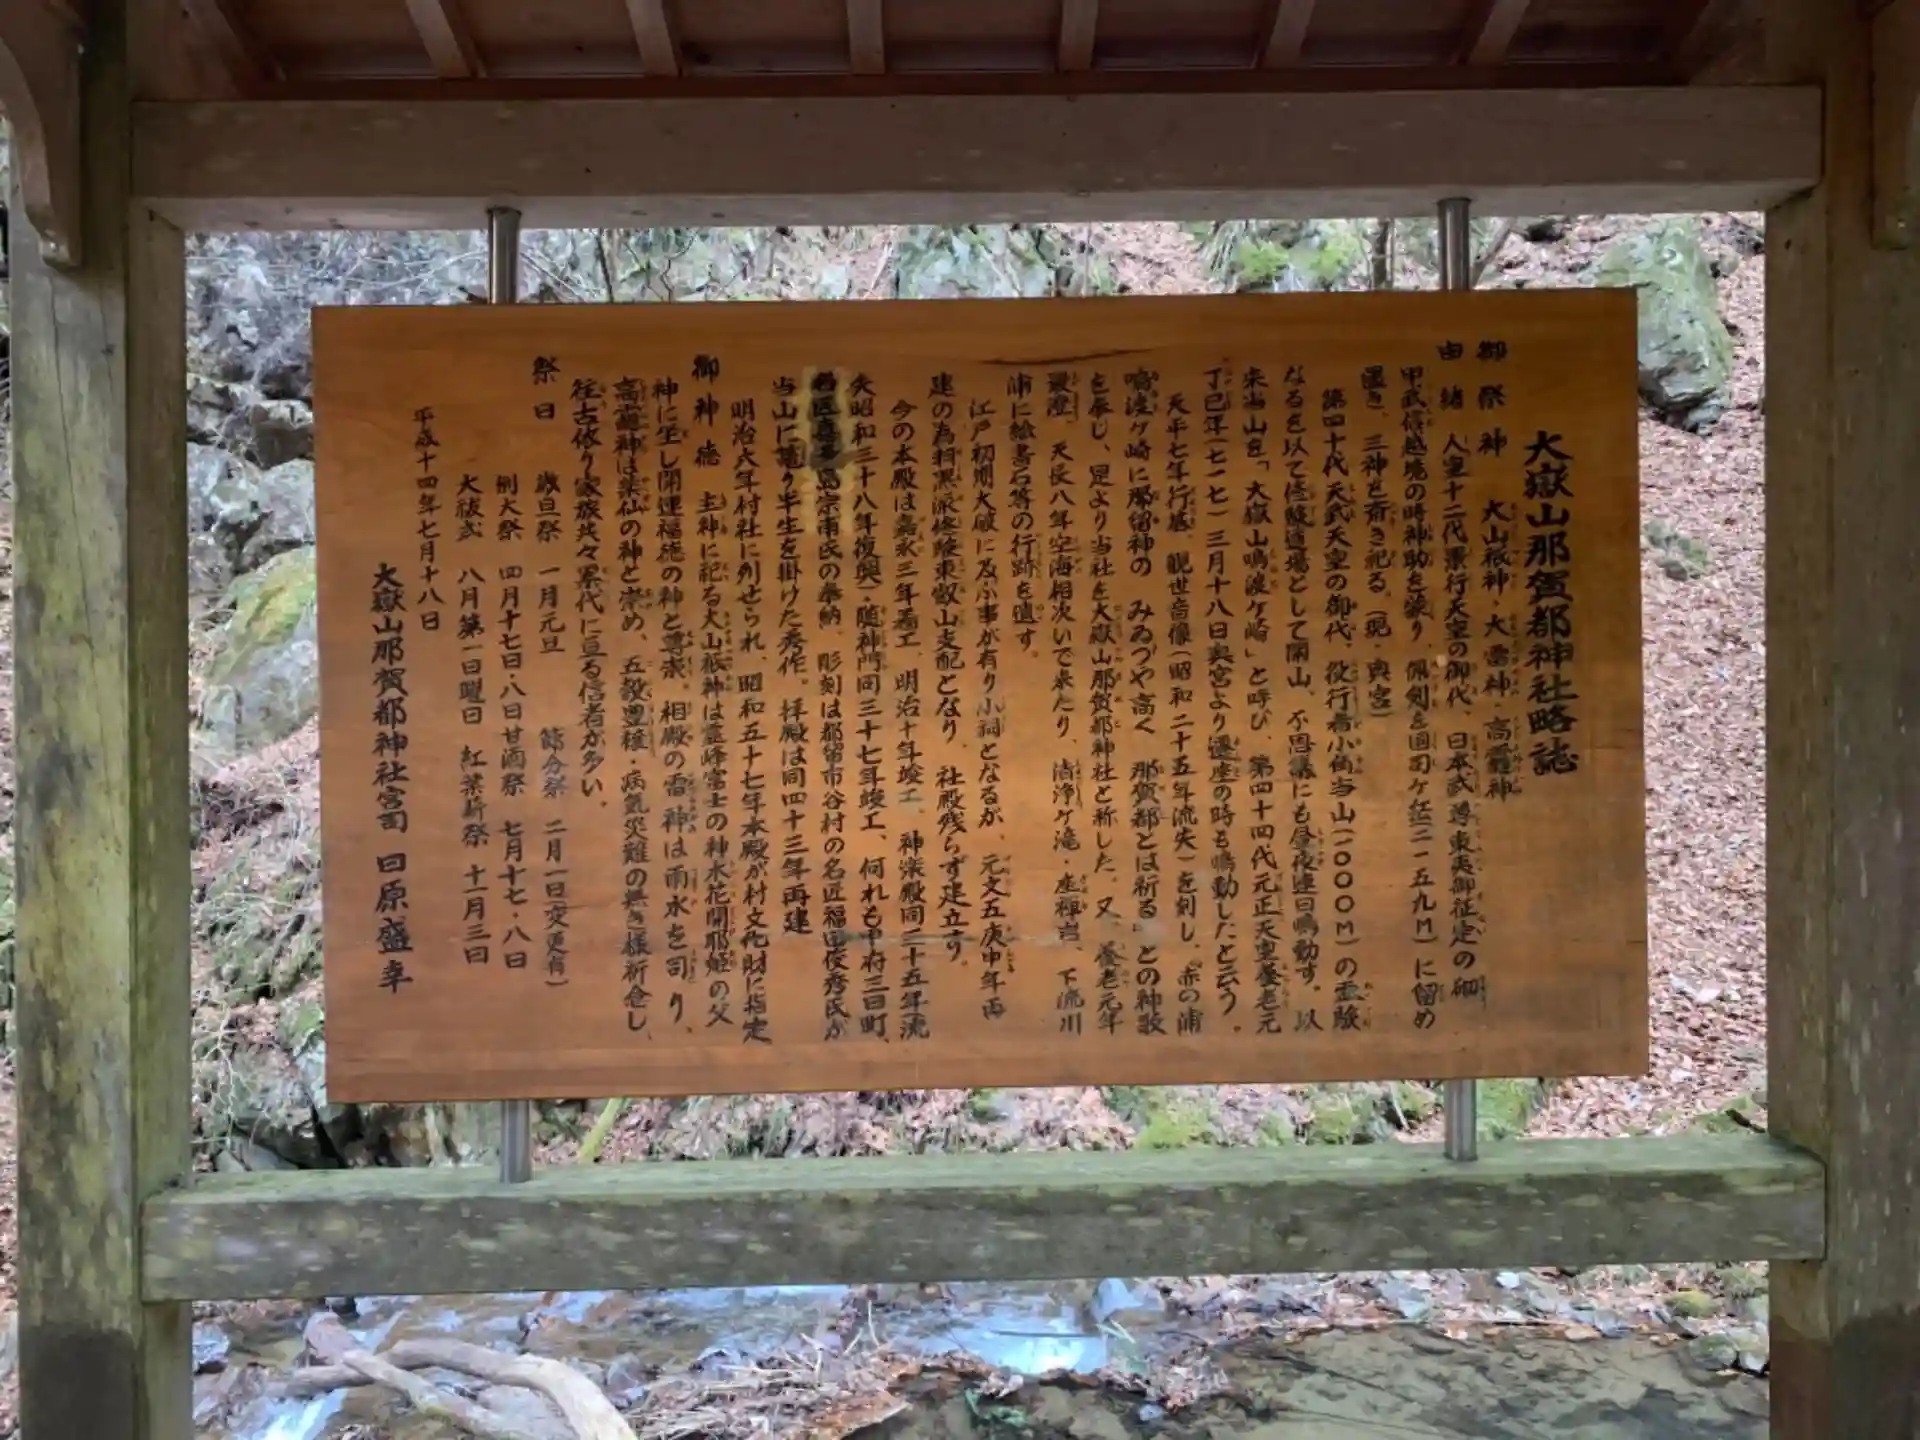 大嶽山那賀都神社略誌
御祭神 大山祇神・大雷神・高龗神
由緒 人皇十二代景行天皇の御代、日本武尊東夷御征定の御
甲武信越境の時神助を蒙り、佩剣を国司ヶ丘(二一五九M)に留め
置き、三神を斎き祀る。(現・奥宮)
第四十代天武天皇の御代、役行者小角当山(一〇〇〇M)の霊験
なるを以て修験道場として開山、不思議にも昼夜連日鳴動す。以
来当山を「大嶽山鳴渡ヶ崎」と呼び、第四十四代元正天皇養老元
丁巳年(七一七)三月十八日奥宮より遷座の時も鳴動したと云う。
天平七年行基、観世音像(昭和二十五年流失)を刻し、「赤の浦
鳴渡ヶ崎に那留神の みゐづや高く 那賀都とは祈る」との神歌
を奉じ、是より当社を大嶽山那賀都神社と称した。又、養老元年
最澄、天長八年空海相次いで来たり、清浄ヶ滝・座禅岩、下流川
浦に絵書石等の行跡を遺す。
江戸初期大破に及ぶ事が有り小祠となるが、元文五庚申年再
建の為羽黒派修験東叡山支配となり、社殿残らず建立す。
今の本殿は嘉永三年着工、明治十年竣工、神楽殿同三十五年流
失昭和三十八年復興、随神門同三十七年竣工、何れも甲府三日町、
島宗甫氏の奉納、彫刻は都留市谷村の名匠福田俊秀氏が
当山に籠り半生を掛けた秀作。拝殿は同四十三年再建
明治六年村社に列せられ、昭和五十七年本殿が村文化財に指定
御神徳 主神に記る大山祇神は霊峰富士の神木花開耶姫の父
神に坐し開運福徳の神と尊崇。相殿の雷神は雨水を司り、
高龗神は薬仙の神と崇め、五穀豊穣・病気災難の無き様祈念し、
往古依り家族共々累代に亘る信者が多い。
祭日 歳旦祭 一月元旦 節分祭 二月一日(変更有)
例大祭 四月十七日・八日甘酒祭 七月十七・八日
大祓式 八月第一日曜日 紅葉新祭 十一月三日
平成十四年七月十八日
大嶽山那賀都神社宮司 日原盛幸